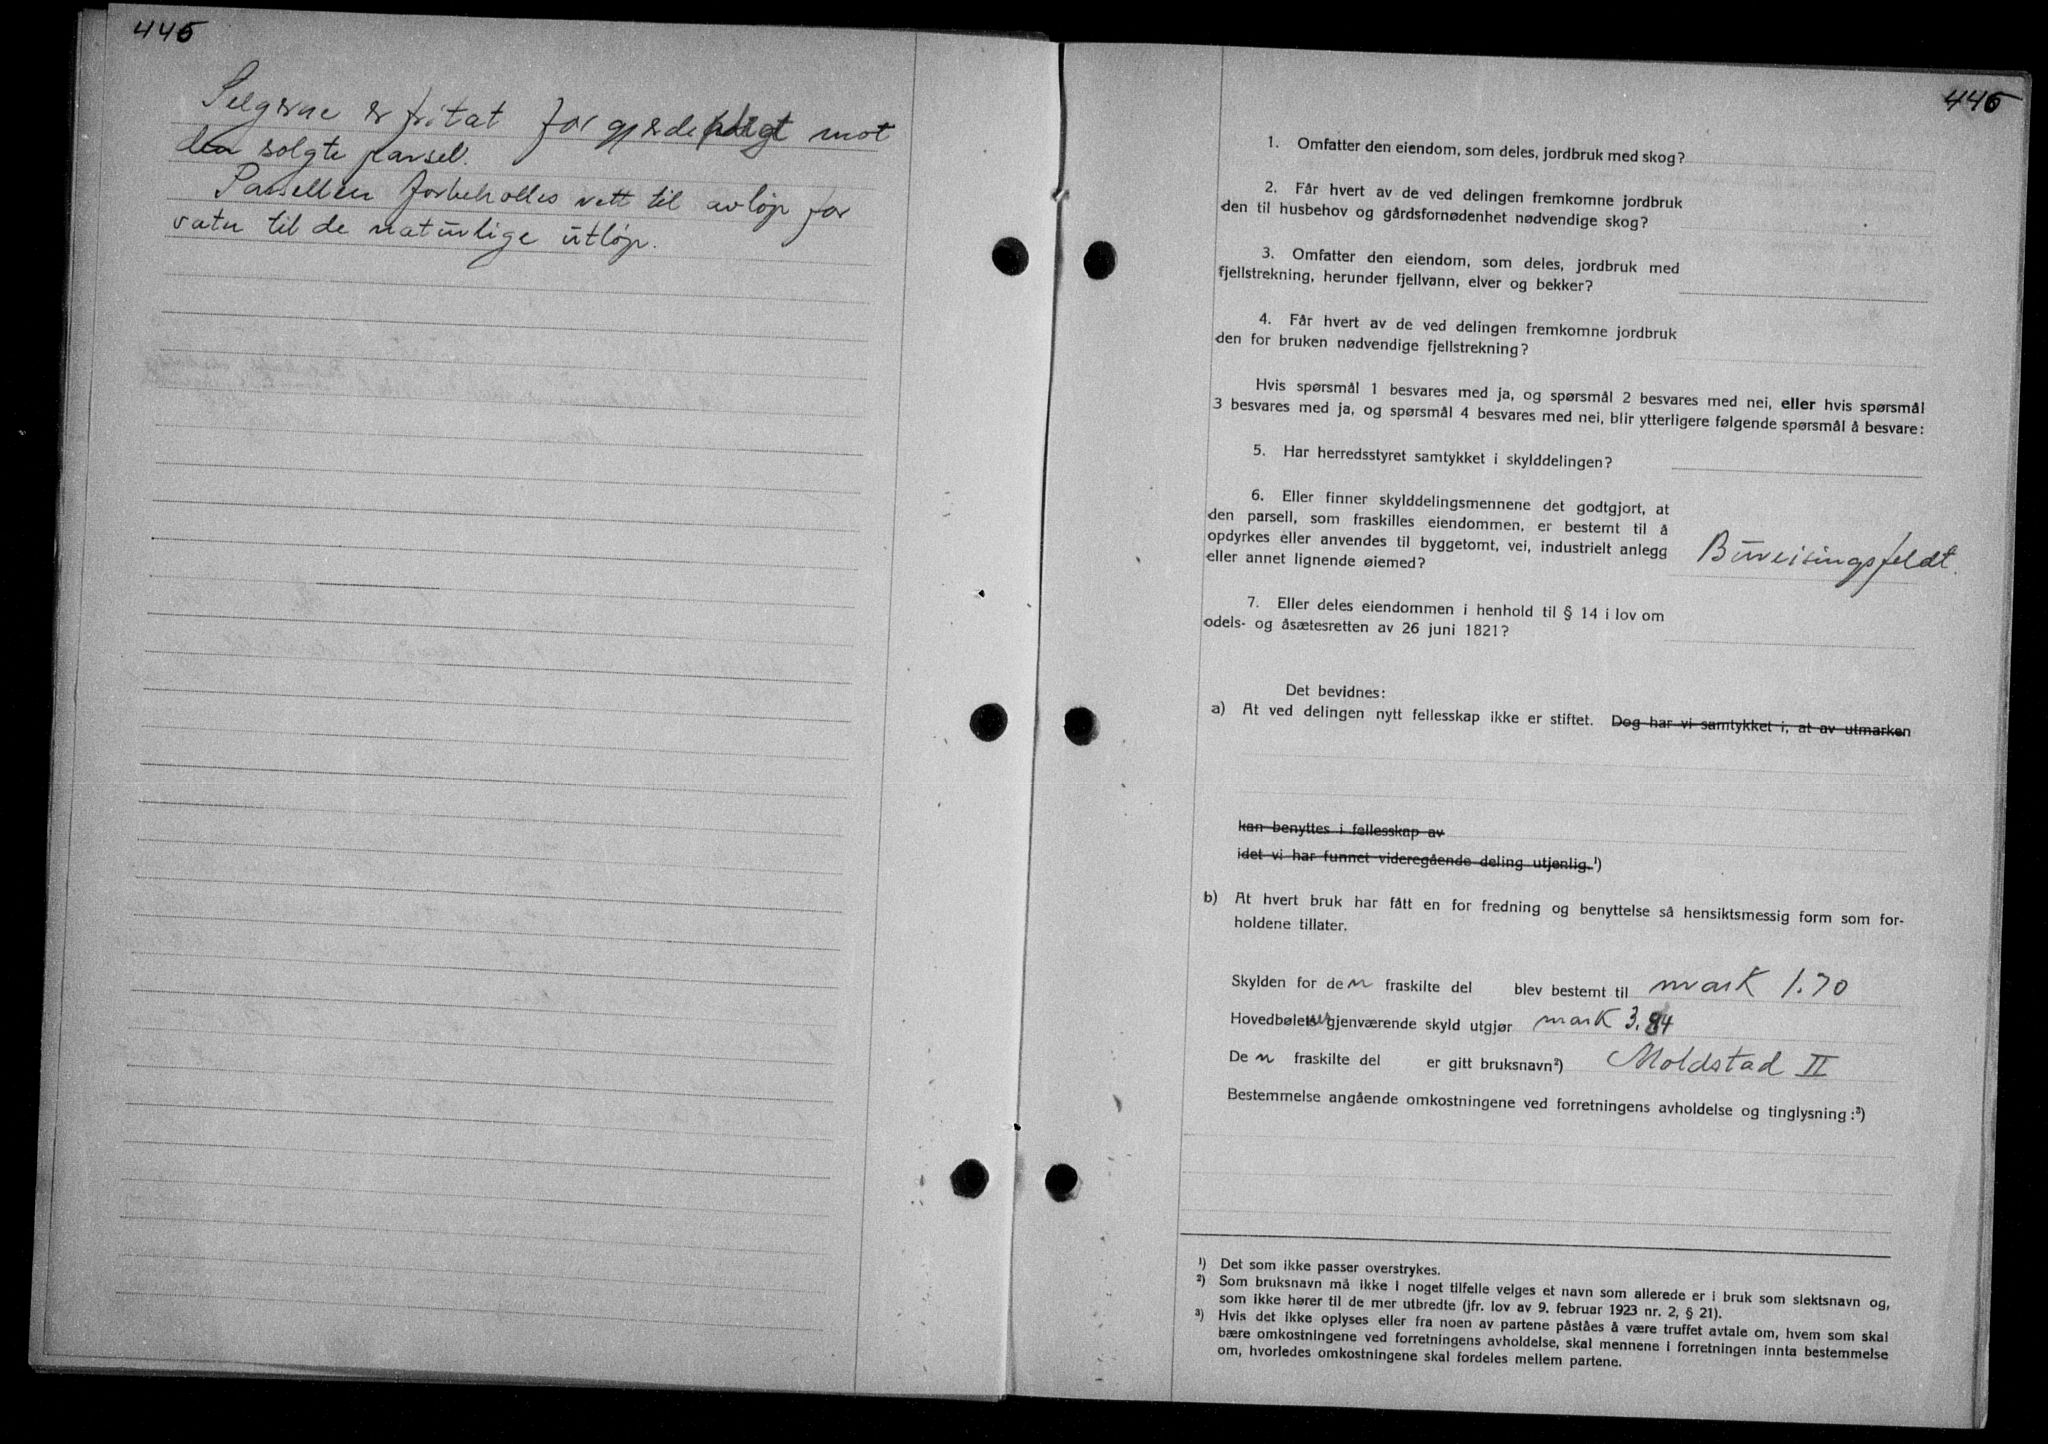 445
Selgerne er fritat for gjerdepligt mot
den solgte parsel.
Parsellen forbeholdes rett til avløp for
vatn til de naturlige utløp.
445
1. Omfatter den eiendom, som deles, jordbruk med skog?
2. Får hvert av de ved delingen fremkomne jordbruk
den til husbehov og gårdsfornødenhet nødvendige skog?
3. Omfatter den eiendom, som deles, jordbruk med
fjellstrekning, herunder fjellvann, elver og bekker?
4. Får hvert av de ved delingen fremkomne jordbruk
den for bruken nødvendige fjellstrekning?
Hvis spørsmål 1 besvares med ja, og spørsmål 2 besvares med nei, eller hvis spørsmål
3 besvares med ja, og spørsmål 4 besvares med nei, blir ytterligere følgende spørsmål å besvare:
5. Har herredsstyret samtykket i skylddelingen?
6. Eller finner skylddelingsmennene det godtgjort, at
den parsell, som fraskilles eiendommen, er bestemt til å
opdyrkes eller anvendes til byggetomt, vei, industrielt anlegg
eller annet lignende øiemed? Bureisingsfeldt.
7. Eller deles eiendommen i henhold til § 14 i lov om
odels- og åsætesretten av 26 juni 1821?
Det bevidnes:
a) At ved delingen nytt fellesskap ikke er stiftet. Dog har vi samtykket i, at av utmarken
kan benyttes i fellesskap av
idet vi har funnet videregående deling utjenlig.¹)
b) At hvert bruk har fått en for fredning og benyttelse så hensiktsmessig form som for-
holdene tillater.
Skylden for den fraskilte del blev bestemt til mark 1.70
Hovedbølets gjenværende skyld utgjør mark 3.84
Den fraskilte del er gitt bruksnavn²) Moldstad II
Bestemmelse angående omkostningene ved forretningens avholdelse og tinglysning:³)
¹) Det som ikke passer overstrykes.
²) Som bruksnavn må ikke i noget tilfelle velges et navn som allerede er i bruk som slektsnavn og,
som ikke hører til de mer utbredte (jfr. lov av 9. februar 1923 nr. 2, § 21).
³) Hvis det ikke oplyses eller fra noen av partene påståes å være truffet avtale om, hvem som skal
bære omkostningene ved forretningens avholdelse, skal mennene i forretningen innta bestemmelse
om, hvorledes omkostningene skal fordeles mellem partene.